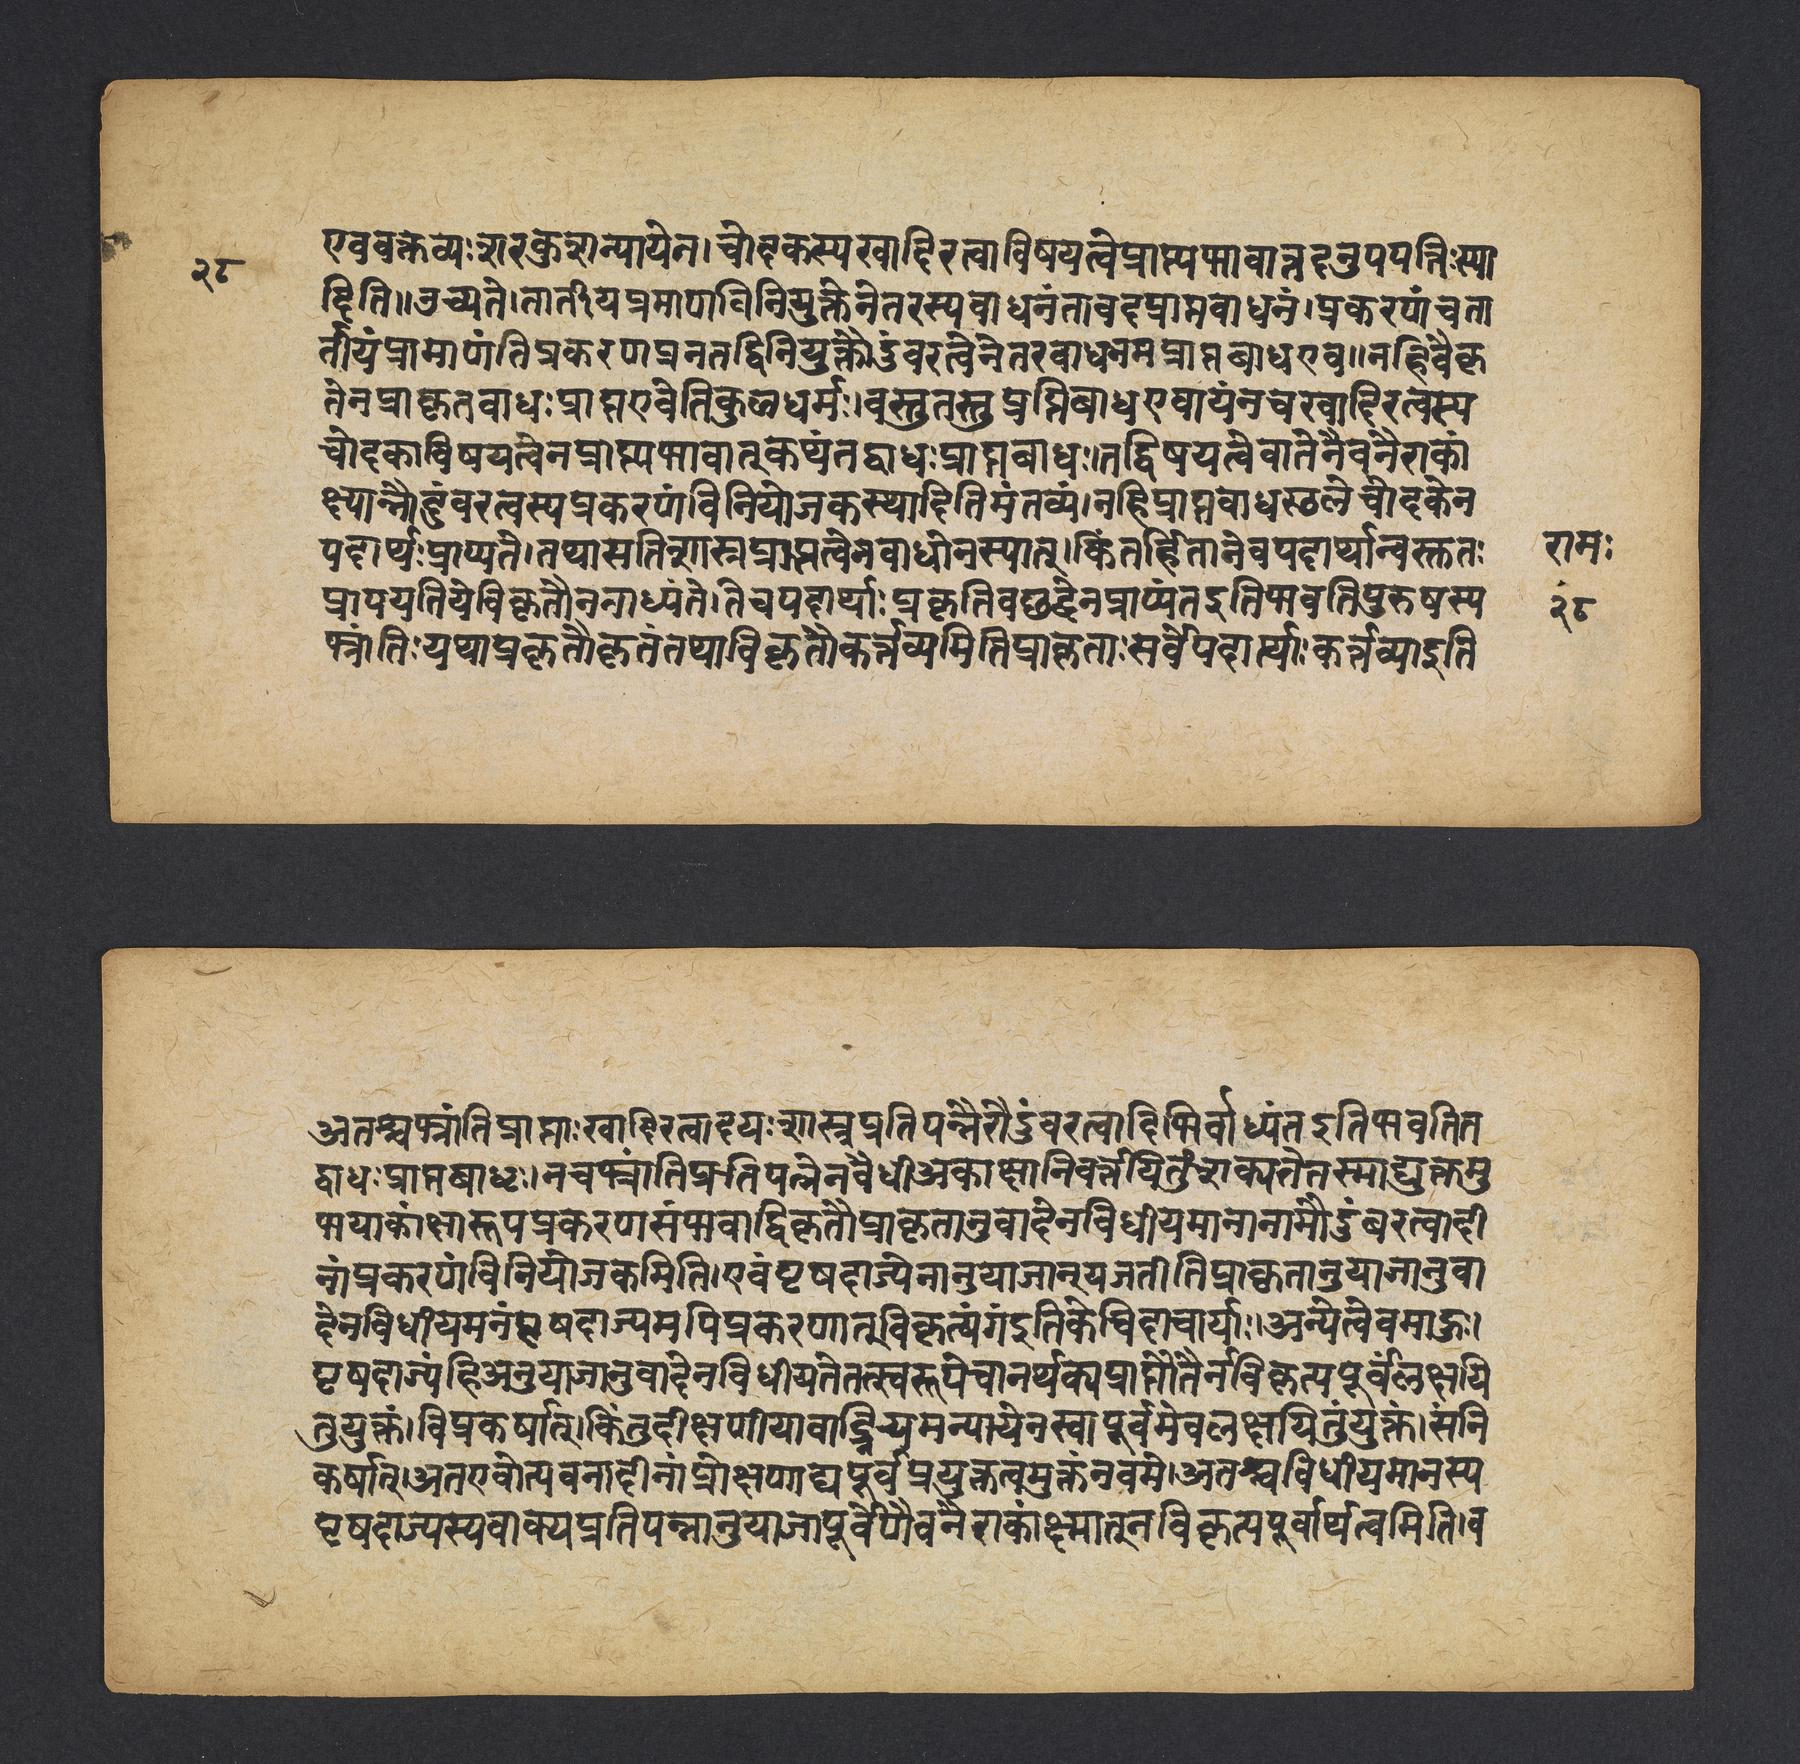 २८
एववक्तव्यःशरकुशन्यायेन।चोदकस्यखादिरत्वाविषयत्वेप्राप्त्यभावात्तदनुपपत्तिःस्या
दिति॥उच्यते।तार्तीयप्रमाणविनियुक्तेनेतरस्यबाधनंतावदप्राप्तबाधनं।प्रकरणंचता
र्तीयंप्रामाणंतिप्रकरणप्रनतद्विनियुक्तौदुंवरत्वेनेतरबाधनमप्राप्तबाधएव॥नहिवैकृ
तेनप्राकृतवाधःप्राप्तएवेतिकुलधर्मः।वस्तुतस्तुप्रप्तिबाधएवायंनचखादिरत्वस्य
चोदकाविषयत्वेनप्राप्त्यभावात्कथंतद्बाधःप्राप्तबाधः।तद्विषयत्वेवातेनैवनैराकां
क्ष्यान्नौदुंवरत्वस्यप्रकरणंविनियोजकस्यादितिमंतव्यं।नहिप्राप्तवाधस्छलेचोदकेन
पदार्थःप्राप्यते।तथासतिशास्त्रप्राप्तत्वेनबाधोनस्यात्।किंतर्हितानेवपदार्थान्वस्तुतः
प्रापयतियेविकृतौनबाध्यंते।तेचपदार्थाःप्रकृतिवछब्देनप्राप्यंतइतिभवतिपुरुषस्य
भ्रांतिःयथाप्रकृतौकृतंतथाविकृतौकर्त्तव्यमितिप्राकृताःसर्वेपदार्थाःकर्त्तव्याइति
रामः
२८
अतश्चभ्रांतिप्राप्ताःखादिरत्वादयःशास्त्रप्रतिपन्नैरौदुंवरत्वादिभिर्बाध्यंतइतिभवतित
द्बाधःप्राप्तबाधः।नचभ्रांतिप्रतिपन्नेनवैधीअकाक्षानिवर्त्तयितुंशक्यतेतस्माद्युक्तमु
भयाकांक्षारूपप्रकरणसंभवाद्विकृतौप्राकृतानुवादेनविधीयमानानामौदुंबरत्वादी
नांप्रकरणंविनियोजकमिति।एवंपृषदाज्येनानुयाजान्यजतीतिप्राकृतानुयाजानुवा
देनविधीयमनंपृषदाज्यमपिप्रकरणात्विकृत्यंगंइतिकेचिदाचार्याः।अन्येत्वेवमाहुः।
पृषदाज्यंहिअनुयाजानुवादेनविधीयतेतत्स्वरूपेचानर्थक्यप्राप्तौतैर्नविकृत्यपूर्वंलक्षयि
तुयुक्तं।विप्रकर्षात्।किंतुदीक्षणीयावाङ्नियमन्यायेनस्वापूर्वमेवलक्षयितुंयुक्तं।संनि
कर्षात्।अतएवोत्पवनादीनांप्रोक्षणाद्यपूर्वप्रयुक्तत्वमुक्तंनवमे।अतश्चविधीयमानस्य
पृषदाज्यस्यवाक्यप्रतिपन्नानुयाजापूर्वेणैवनैराकांक्ष्यात्नविकृत्यपूर्वार्थत्वमिति।व